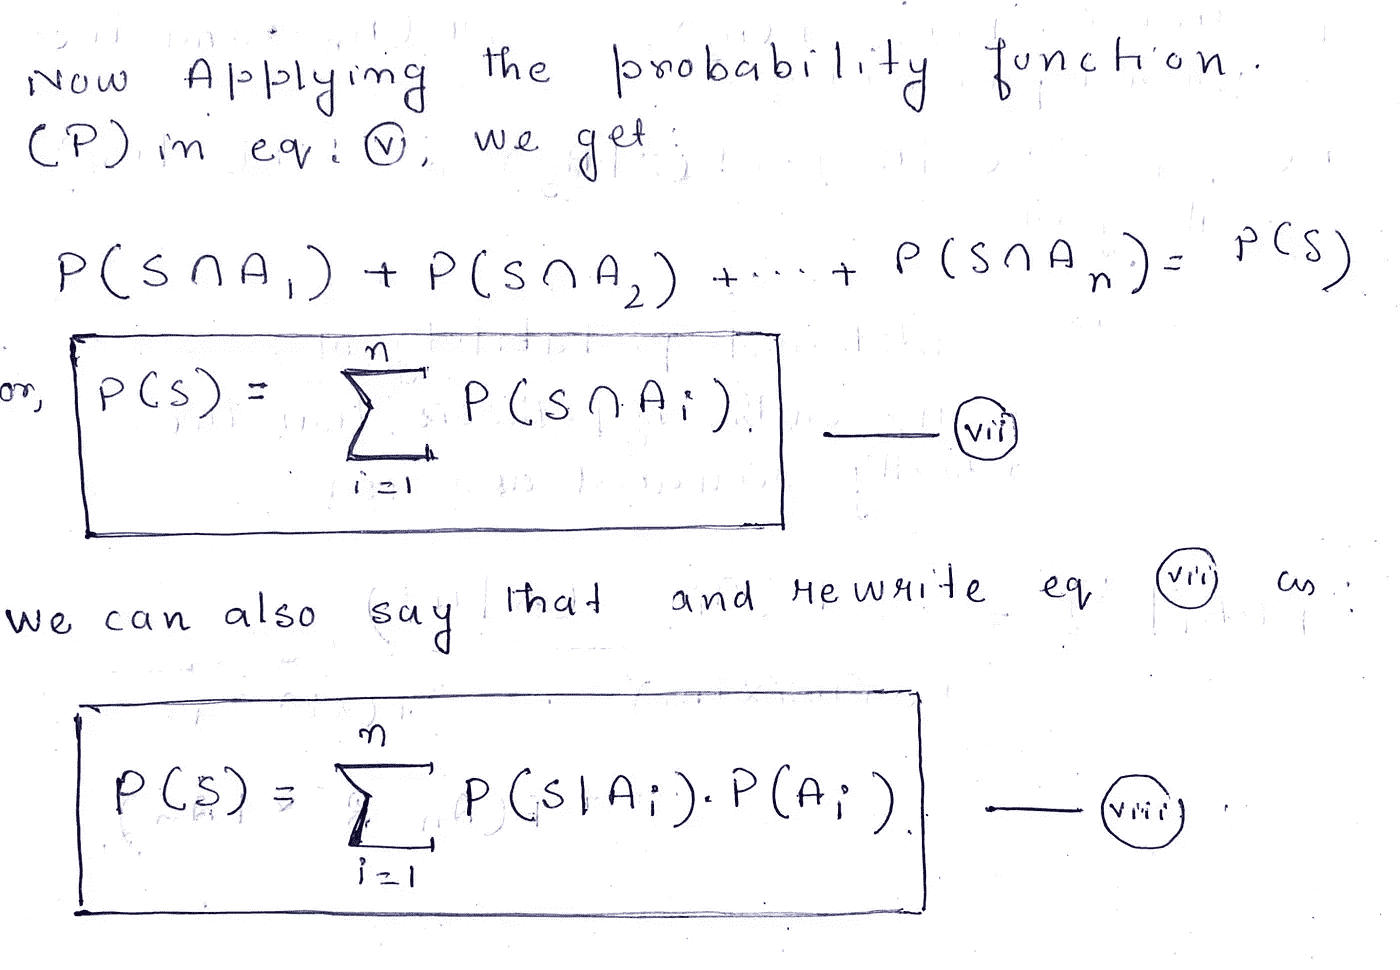 Now Applying the probability function.
(P) in eq: ⓥ, we get:
P(S∩A₁) + P(S∩A₂) + ... + P(S∩Aₙ) = P(S)
or, P(S) = n Σ i=1 P(S∩Aᵢ). — (vii)
we can also say that and rewrite eq (vii) as:
P(S) = n Σ i=1 P(S|Aᵢ).P(Aᵢ). — (viii)